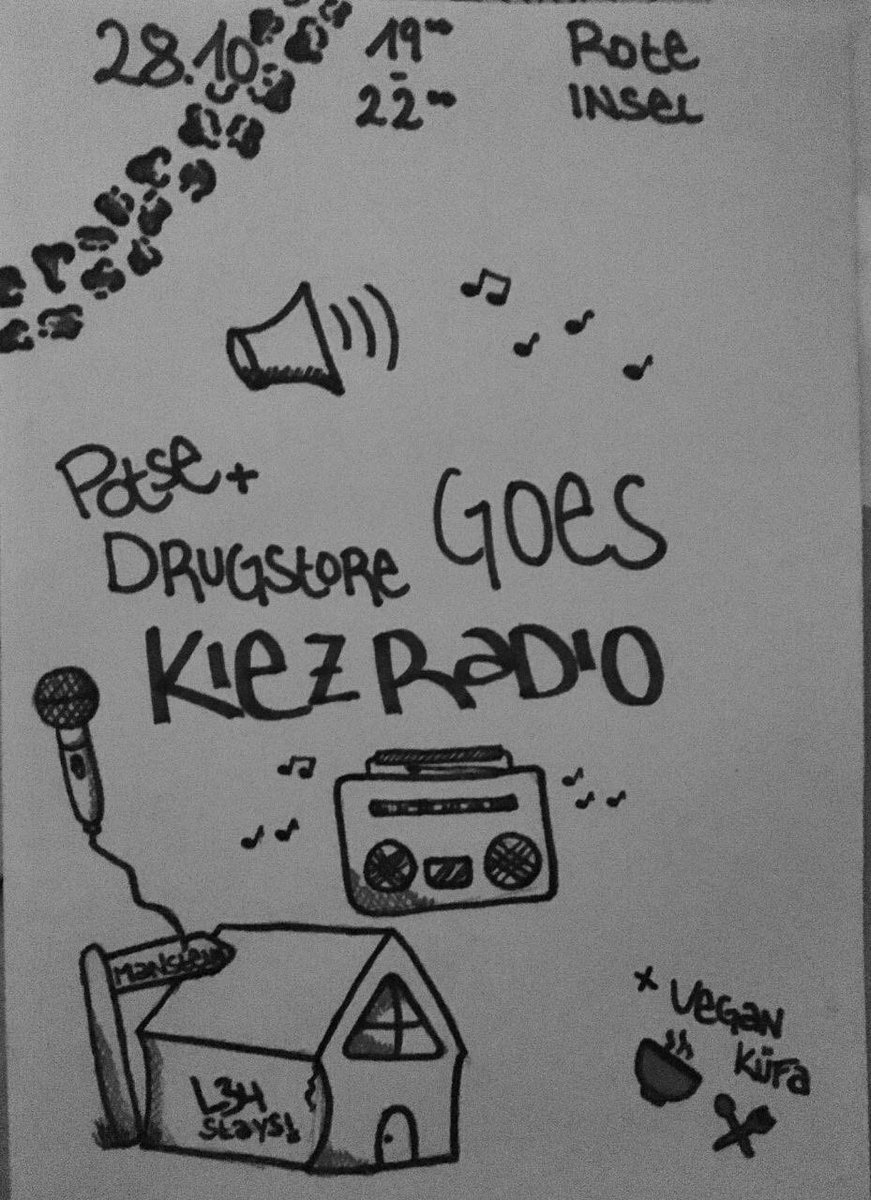 28.10
19⁰⁰
-
22⁰⁰
Rote
Insel
Potse +
Drugstore
Goes
Kiez Radio
L34
stays!
+ Vegan
Küfa